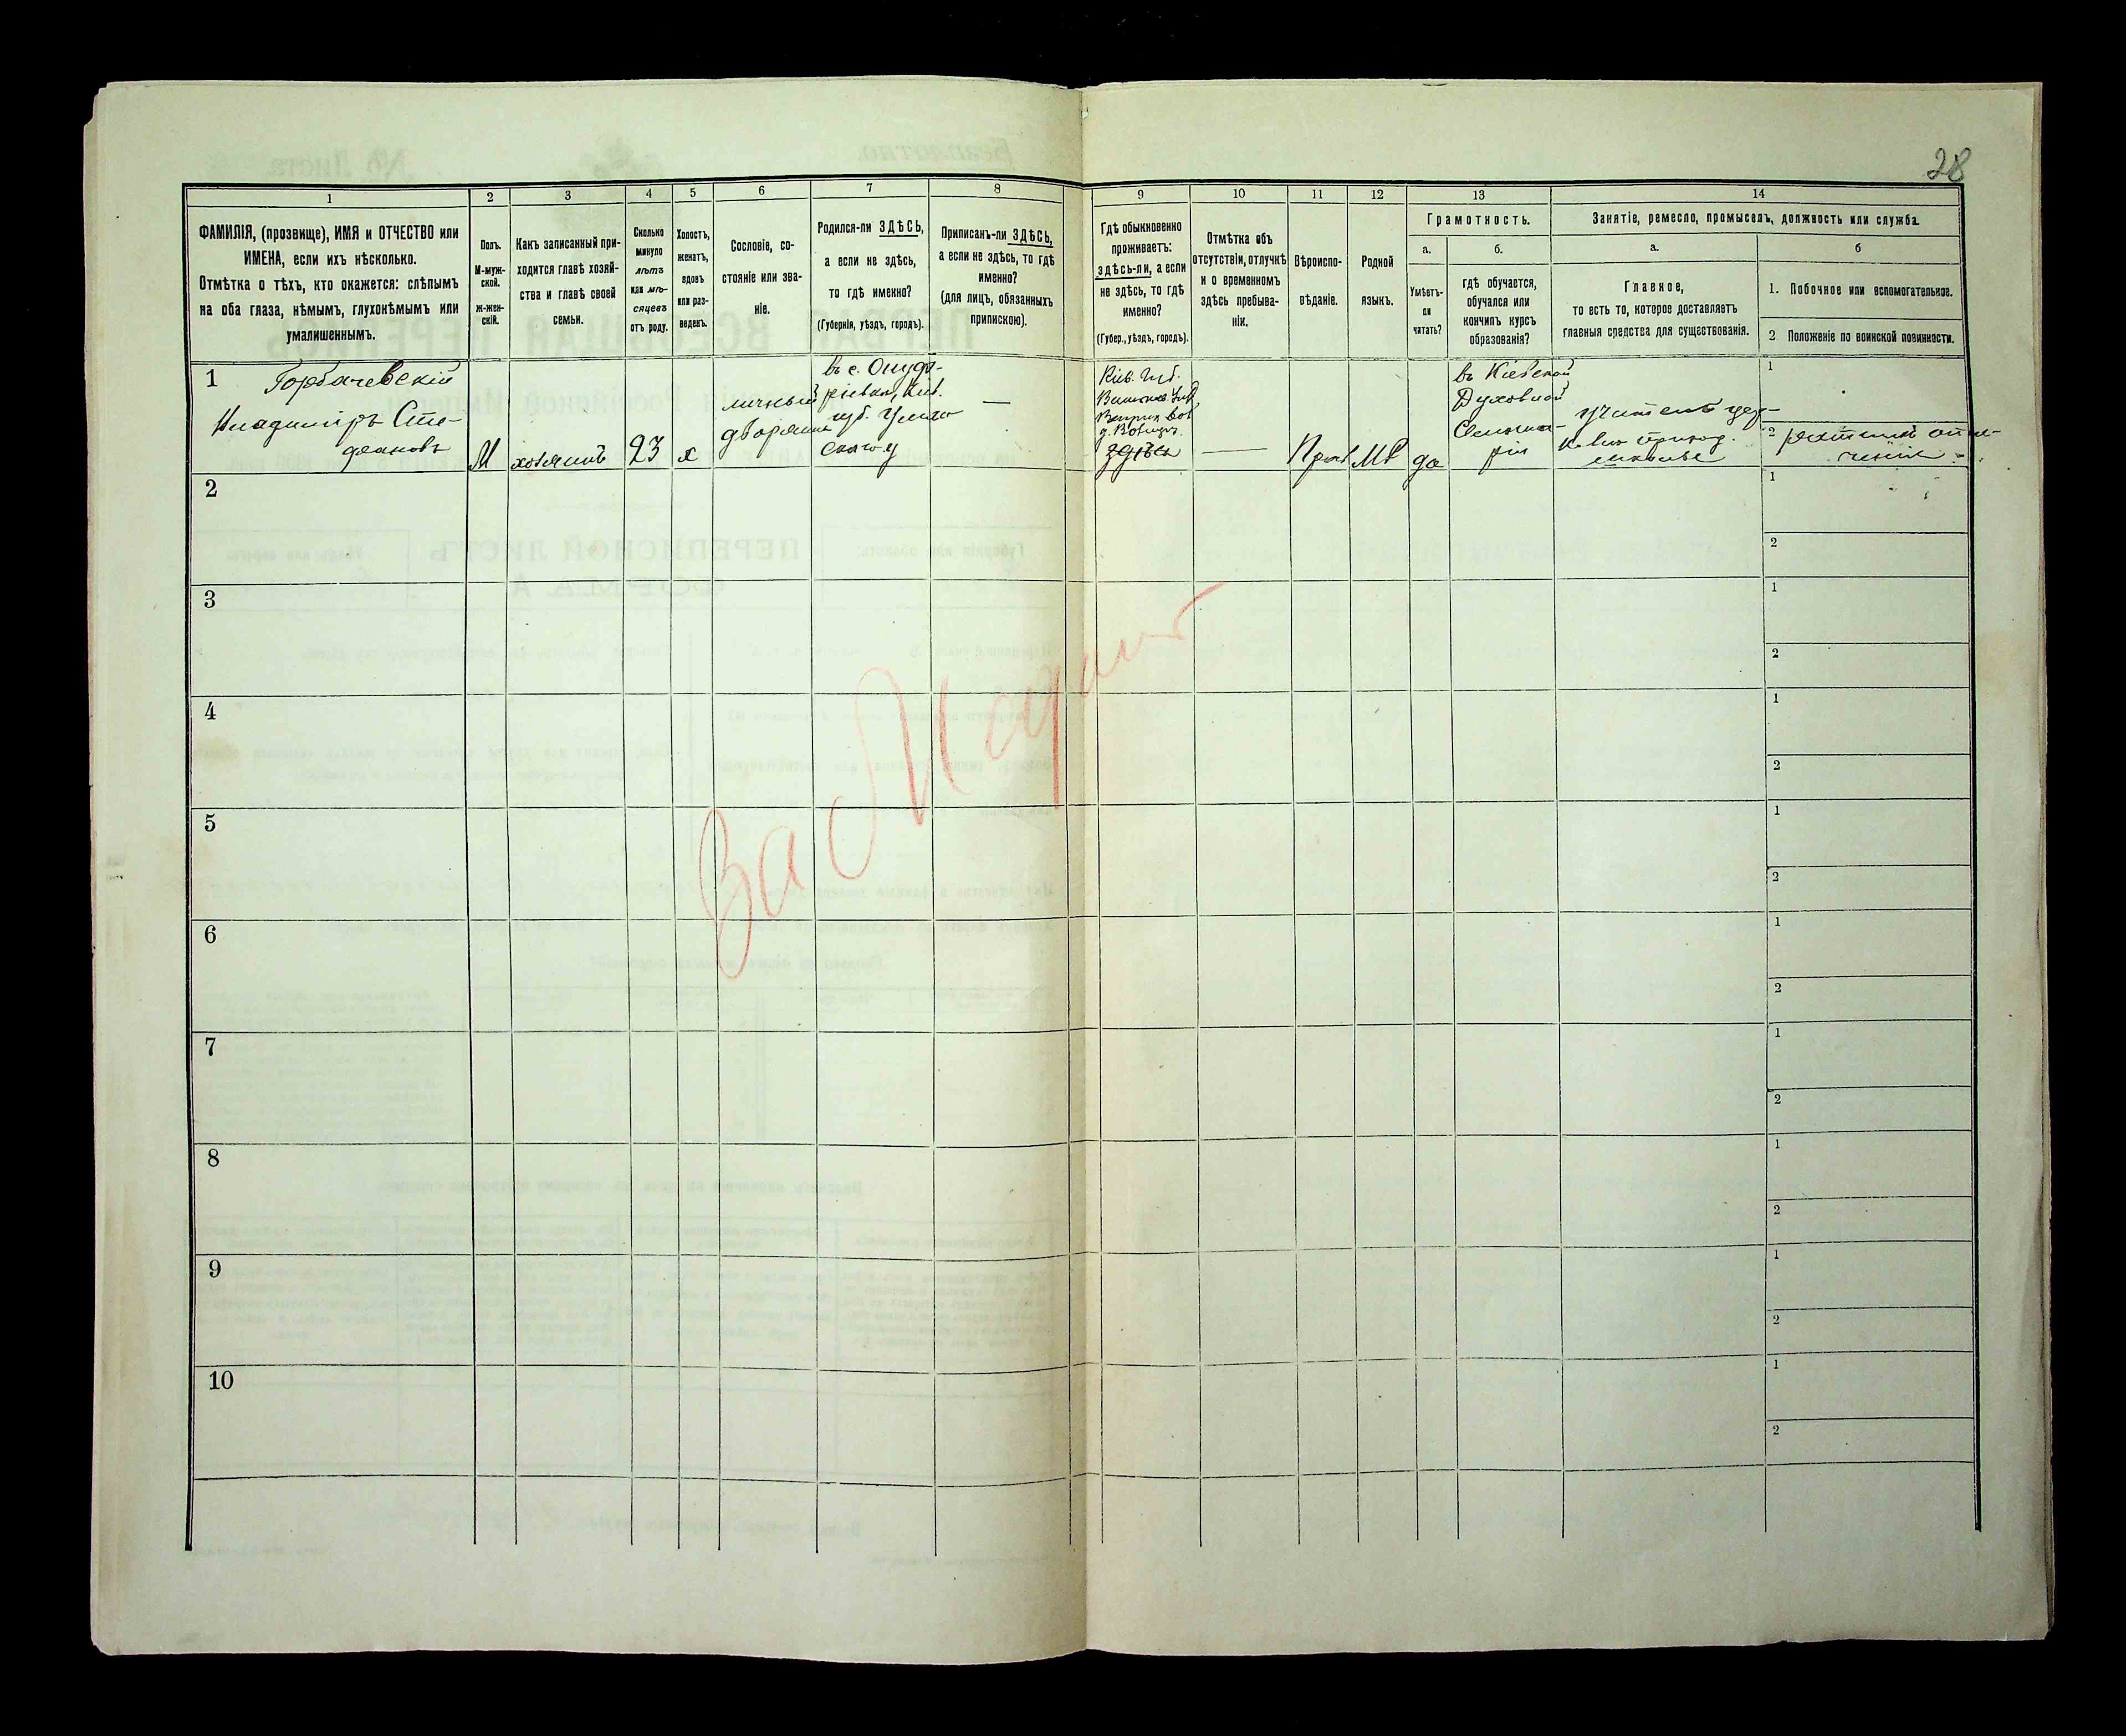 28
1
2
3
4
5
6
7
8
9
10
11
12
13
14
ФАМИЛІЯ, (прозвище), ИМЯ и ОТЧЕСТВО или
ИМЕНА, если ихъ нѣсколько.
Отмѣтка о тѣхъ, кто окажется: слѣпымъ
на оба глаза, нѣмымъ, глухонѣмымъ или
умалишеннымъ.
Полъ.
М-муж-
ской.
ж-жен-
скій.
Какъ записанный при-
ходится главѣ хозяй-
ства и главѣ своей
семьи.
Сколько
минуло
лѣтъ
или мѣ-
сяцевъ
отъ роду.
Холостъ,
женатъ,
вдовъ
или раз-
веденъ.
Сословіе, со-
стояніе или зва-
ніе.
Родился-ли ЗДѢСЬ,
а если не здѣсь,
то гдѣ именно?
(Губернія, уѣздъ, городъ).
Приписанъ-ли ЗДѢСЬ,
а если не здѣсь, то гдѣ
именно?
(для лицъ, обязанныхъ
припискою).
Гдѣ обыкновенно
проживаетъ:
здѣсь-ли, а если
не здѣсь, то гдѣ
именно?
(Губер., уѣздъ, городъ).
Отмѣтка объ
отсутствіи, отлучкѣ
и о временномъ
здѣсь пребыва-
ніи.
Вѣроиспо-
вѣданіе.
Родной
языкъ.
Грамотность.
а.
Умѣетъ-
ли
читать?
б.
гдѣ обучается,
обучался или
кончилъ курсъ
образованія?
Занятіе, ремесло, промыселъ, должность или служба.
а.
Главное,
то есть то, которое доставляетъ
главныя средства для существованія.
б
1. Побочное или вспомогательное.
2 Положеніе по воинской повинности.
1
Горбачевскій
Владиміръ Сте-
фановъ
М
хозяинъ
23
х
личный
дворянинъ
въ с.
Кіев.
губ.
—
Кіев. Губ.
здѣсь
—
Прав
МР
да
въ Кіевской
Духовной
Семина-
ріи
учитель цер-
ковно приход.
школы
1
2
ратникъ опол-
ченія
2
1
2
3
1
2
4
1
2
5
1
2
6
1
2
7
1
2
8
1
2
9
1
2
10
1
2